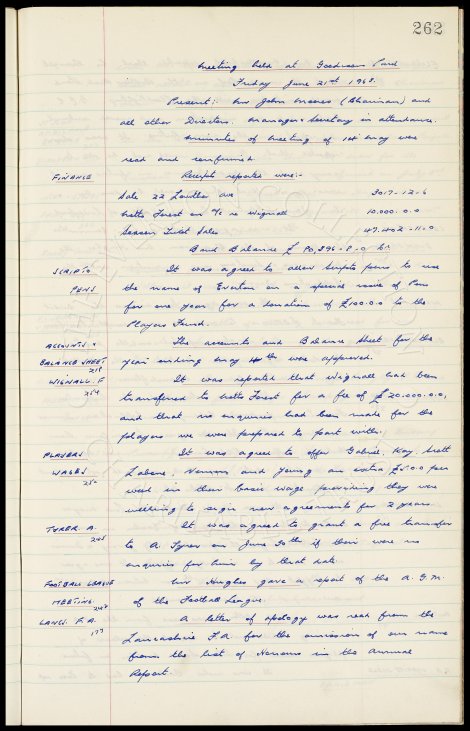 262
Meeting held at Goodison Park
Friday June 21st 1968.
Present:- Mr John Moores (Chairman) and
all other Directors. Manager & Secretary in attendance.
Minutes of meeting of 1st May were
read and confirmed.
FINANCE Receipts reported were:-
Sale 22 Lowther Ave 3017-12-6
Notts Forest on A/c re Wignall 10,000.0.0
Season Ticket Sales 47.402-11-0
Bank Balance £ 80,396-8-0 Cr.
SCRIPTO It was agreed to allow Scripto pens to use
PENS the name of Everton on a special issue of Pens
for one year for a donation of £100.0.0 to the
Players Fund.
ACCOUNTS & The accounts and Balance Sheet for the
BALANCE SHEET year ending May were approved.
258
WIGNALL. F It was reported that Wignall had been
254
transferred to Notts Forest for a fee of £20.000.0.0,
and that no enquiries had been made for the
players we were prepared to part with.
PLAYERS It was agreed to offer Gabriel, Kay, Scott
WAGES Labone, Vernon and Young an extra £5.0.0 per
252
week in their basic wage providing they were
willing to sign new agreements for 2 years.
TYRER. A. It was agreed to grant a free transfer
245
to A. Tyrer on June 30th if there were no
enquiries for him by that date.
FOOTBALL LEAGUE Mr Hughes gave a report of the A.G.M.
MEETING. of the Football League.
247
LANCS. F.A. A letter of apology was read from the
177
Lancashire F.A for the omission of our name
from the list of Honours in the Annual
Report.